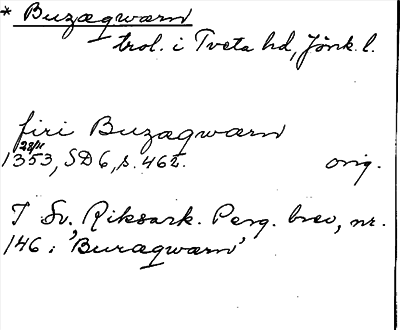 * Buzæqwærn
trol. i Tveta hd, Jönk. l.
firi Buzæqwærn
28/11
1353, SD 6, s. 462. orig.
I Sv. Riksark. Perg. brev, nr.
146: 'Buræqwærn'